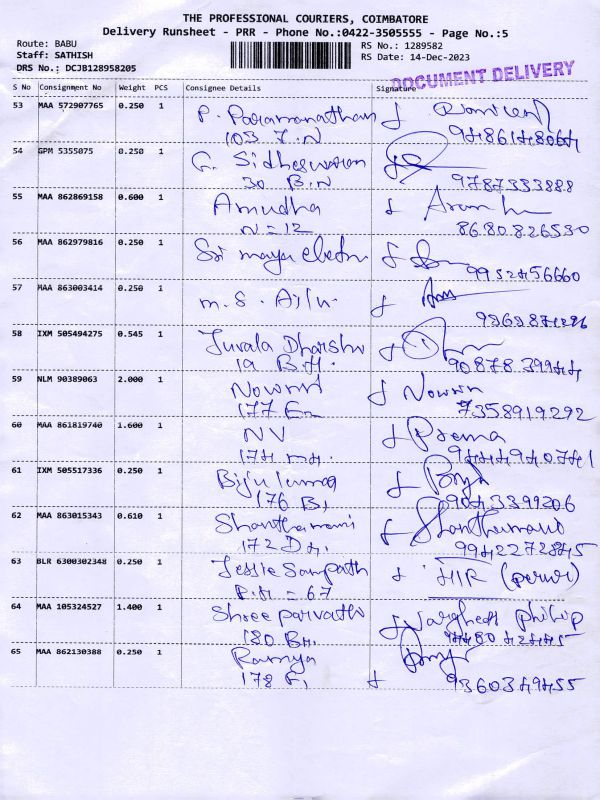 THE PROFESSIONAL COURIERS, COIMBATORE
Delivery Runsheet - PRR - Phone No.:0422-3505555 - Page No.:5
Route: BABU
Staff: SATHISH
DRS No.: DCJB128958205
RS No.: 1289582
RS Date: 14-Dec-2023
DOCUMENT DELIVERY
S No Consignment No Weight PCS Consignee Details Signature
53 MAA 572907765 0.250 1 P. Paramanathan
103 7.N
54 GPM 5355075 0.250 1 G. Sidheswaran
30 B.N 9787333888
55 MAA 862869158 0.600 1 Amudha
N = 12 8680826530
56 MAA 862979816 0.250 1 Sri maya
9952456660
57 MAA 863003414 0.250 1 M.S.
58 IXM 505494275 0.545 1
19 B.H. 9087839944
59 NLM 90389063 2.000 1 Nowrin Nowrin
177 7358919292
60 MAA 861819740 1.600 1 NV Prema
174 9444940741
61 IXM 505517336 0.250 1 Biju Kumar
176 B, 9043399206
62 MAA 863015343 0.610 1 Shanthamani Shanthamani
172 D 9942272845
63 BLR 6300302348 0.250 1 Jessie Sampath
P.H = 67
64 MAA 105324527 1.400 1 Shree parvathi Varghese philip
180 BH. 9480424445
65 MAA 862130388 0.250 1 Ramya
178 F, 9360349455